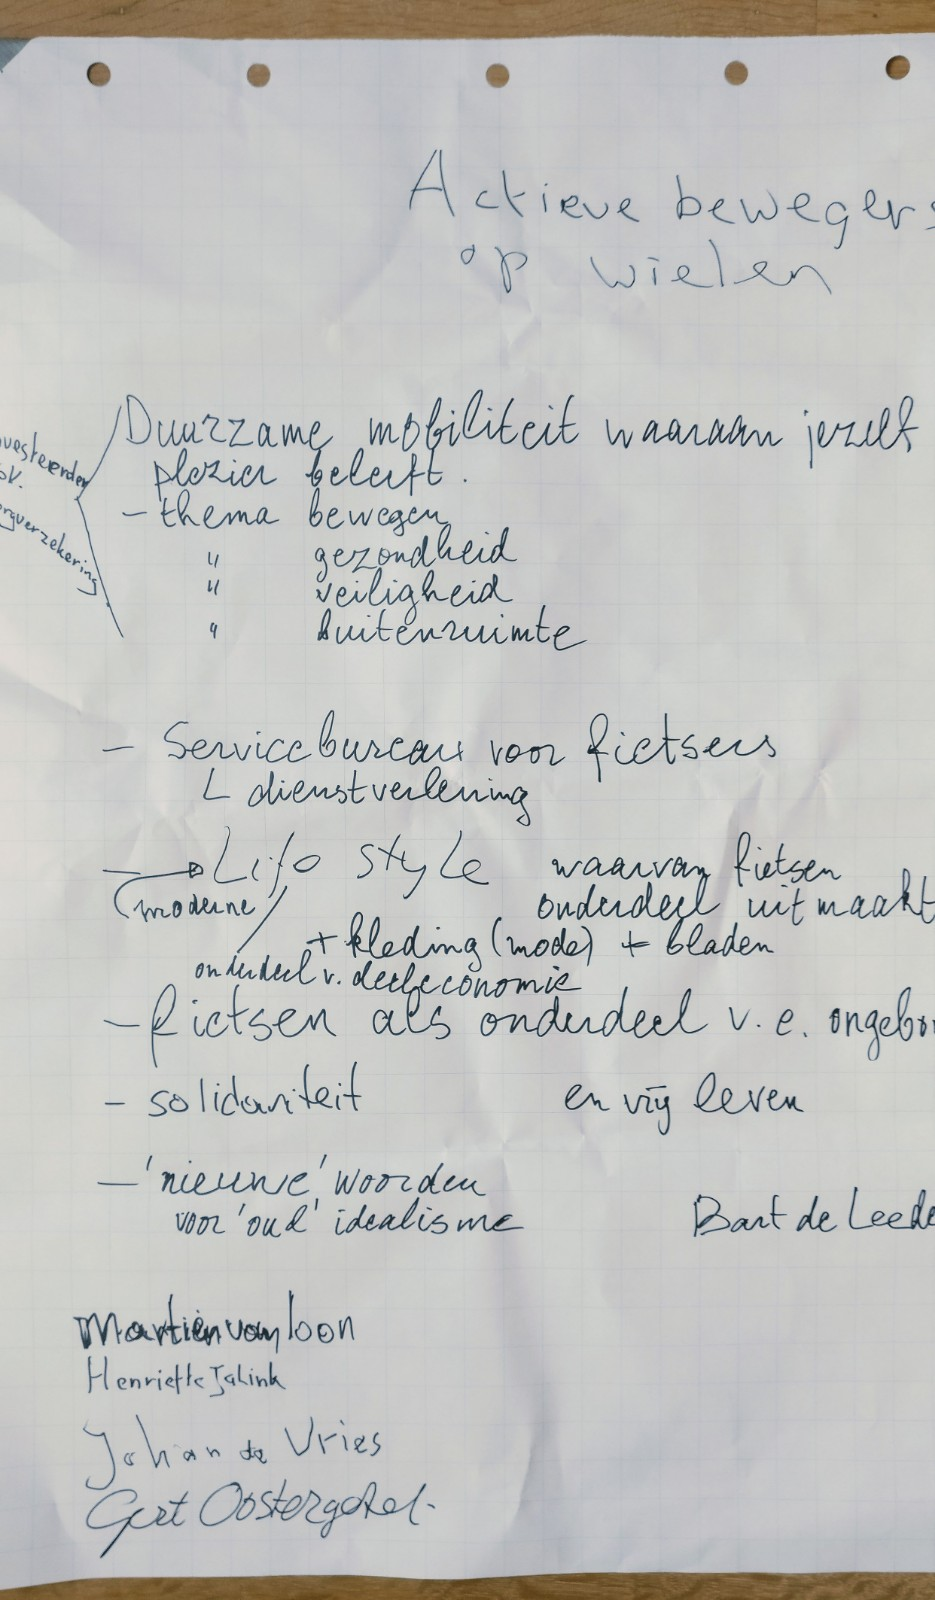 Actieve bewegers
op wielen
Duurzame mobiliteit waaraan jezelf
plezier beleeft.
- thema bewegen
" gezondheid
" veiligheid
" buitenruimte
- Servicebureau voor fietsers
L dienstverlening
- Life style waarvan fietsen
moderne onderdeel uitmaakt
+ kleding (mode) + bladen
onderdeel v. deeleconomie
- fietsen als onderdeel v.e.
- solidariteit en vrij leven
- 'nieuwe' woorden
voor 'oud' idealisme
Bart de
Martien van Loon
Henriette Jalink
Johan de Vries
Gert